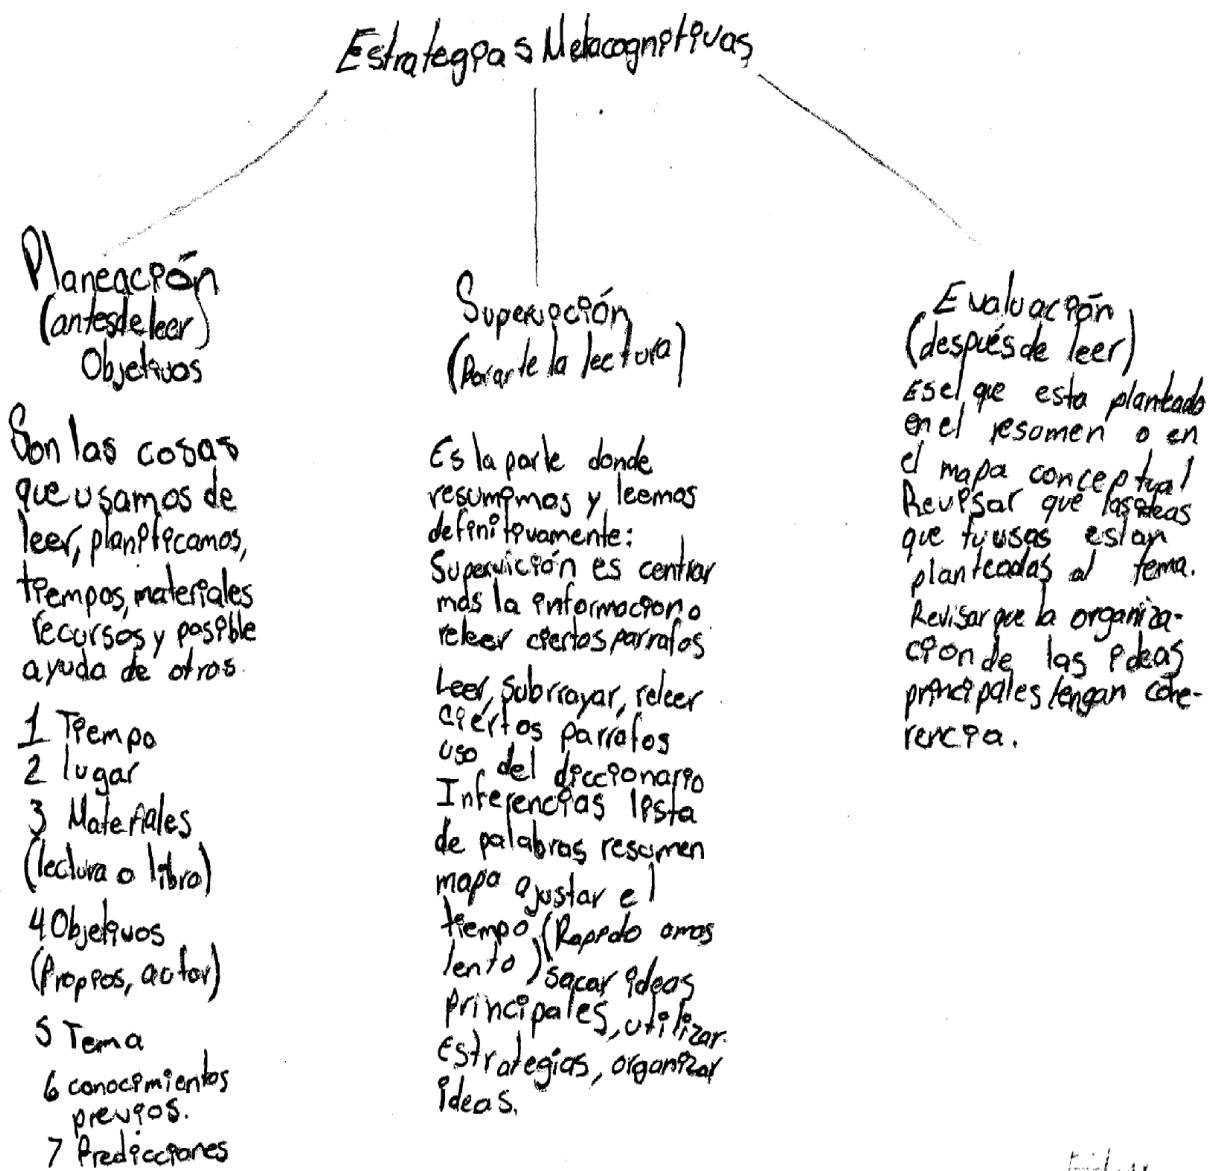 Estrategias Metacognitivas
Planeación
(antes de leer)
Objetivos
Son las cosas
que usamos de
leer, planificamos,
tiempos, materiales
recursos y posible
ayuda de otros.
1 Tiempo
2 lugar
3 Materiales
(lectura o libro)
4 Objetivos
(Propios, autor)
5 Tema
6 conocimientos
previos.
7 Predicciones
Supervición
(Durante la lectura)
Es la parte donde
resumimos y leemos
definitivamente:
Supervición es centrar
mas la informacion o
releer ciertos parrafos
Leer, subrrayar, releer
ciertos parrafos
uso del diccionario
Inferencias lista
de palabras resumen
mapa ajustar el
tiempo (Rapido o mas
lento) sacar ideas
principales, utilizar
Estrategias, organizar
ideas.
Evaluación
(después de leer)
Es el que esta planteado
en el resumen o en
el mapa conceptual
Revisar que las ideas
que tu usas estan
planteadas al tema.
Revisar que la organiza-
cion de las ideas
principales tengan cohe-
rencia.